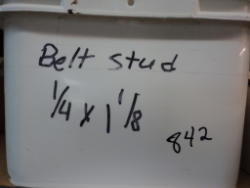 Belt stud
1/4 x 1 1/8
842